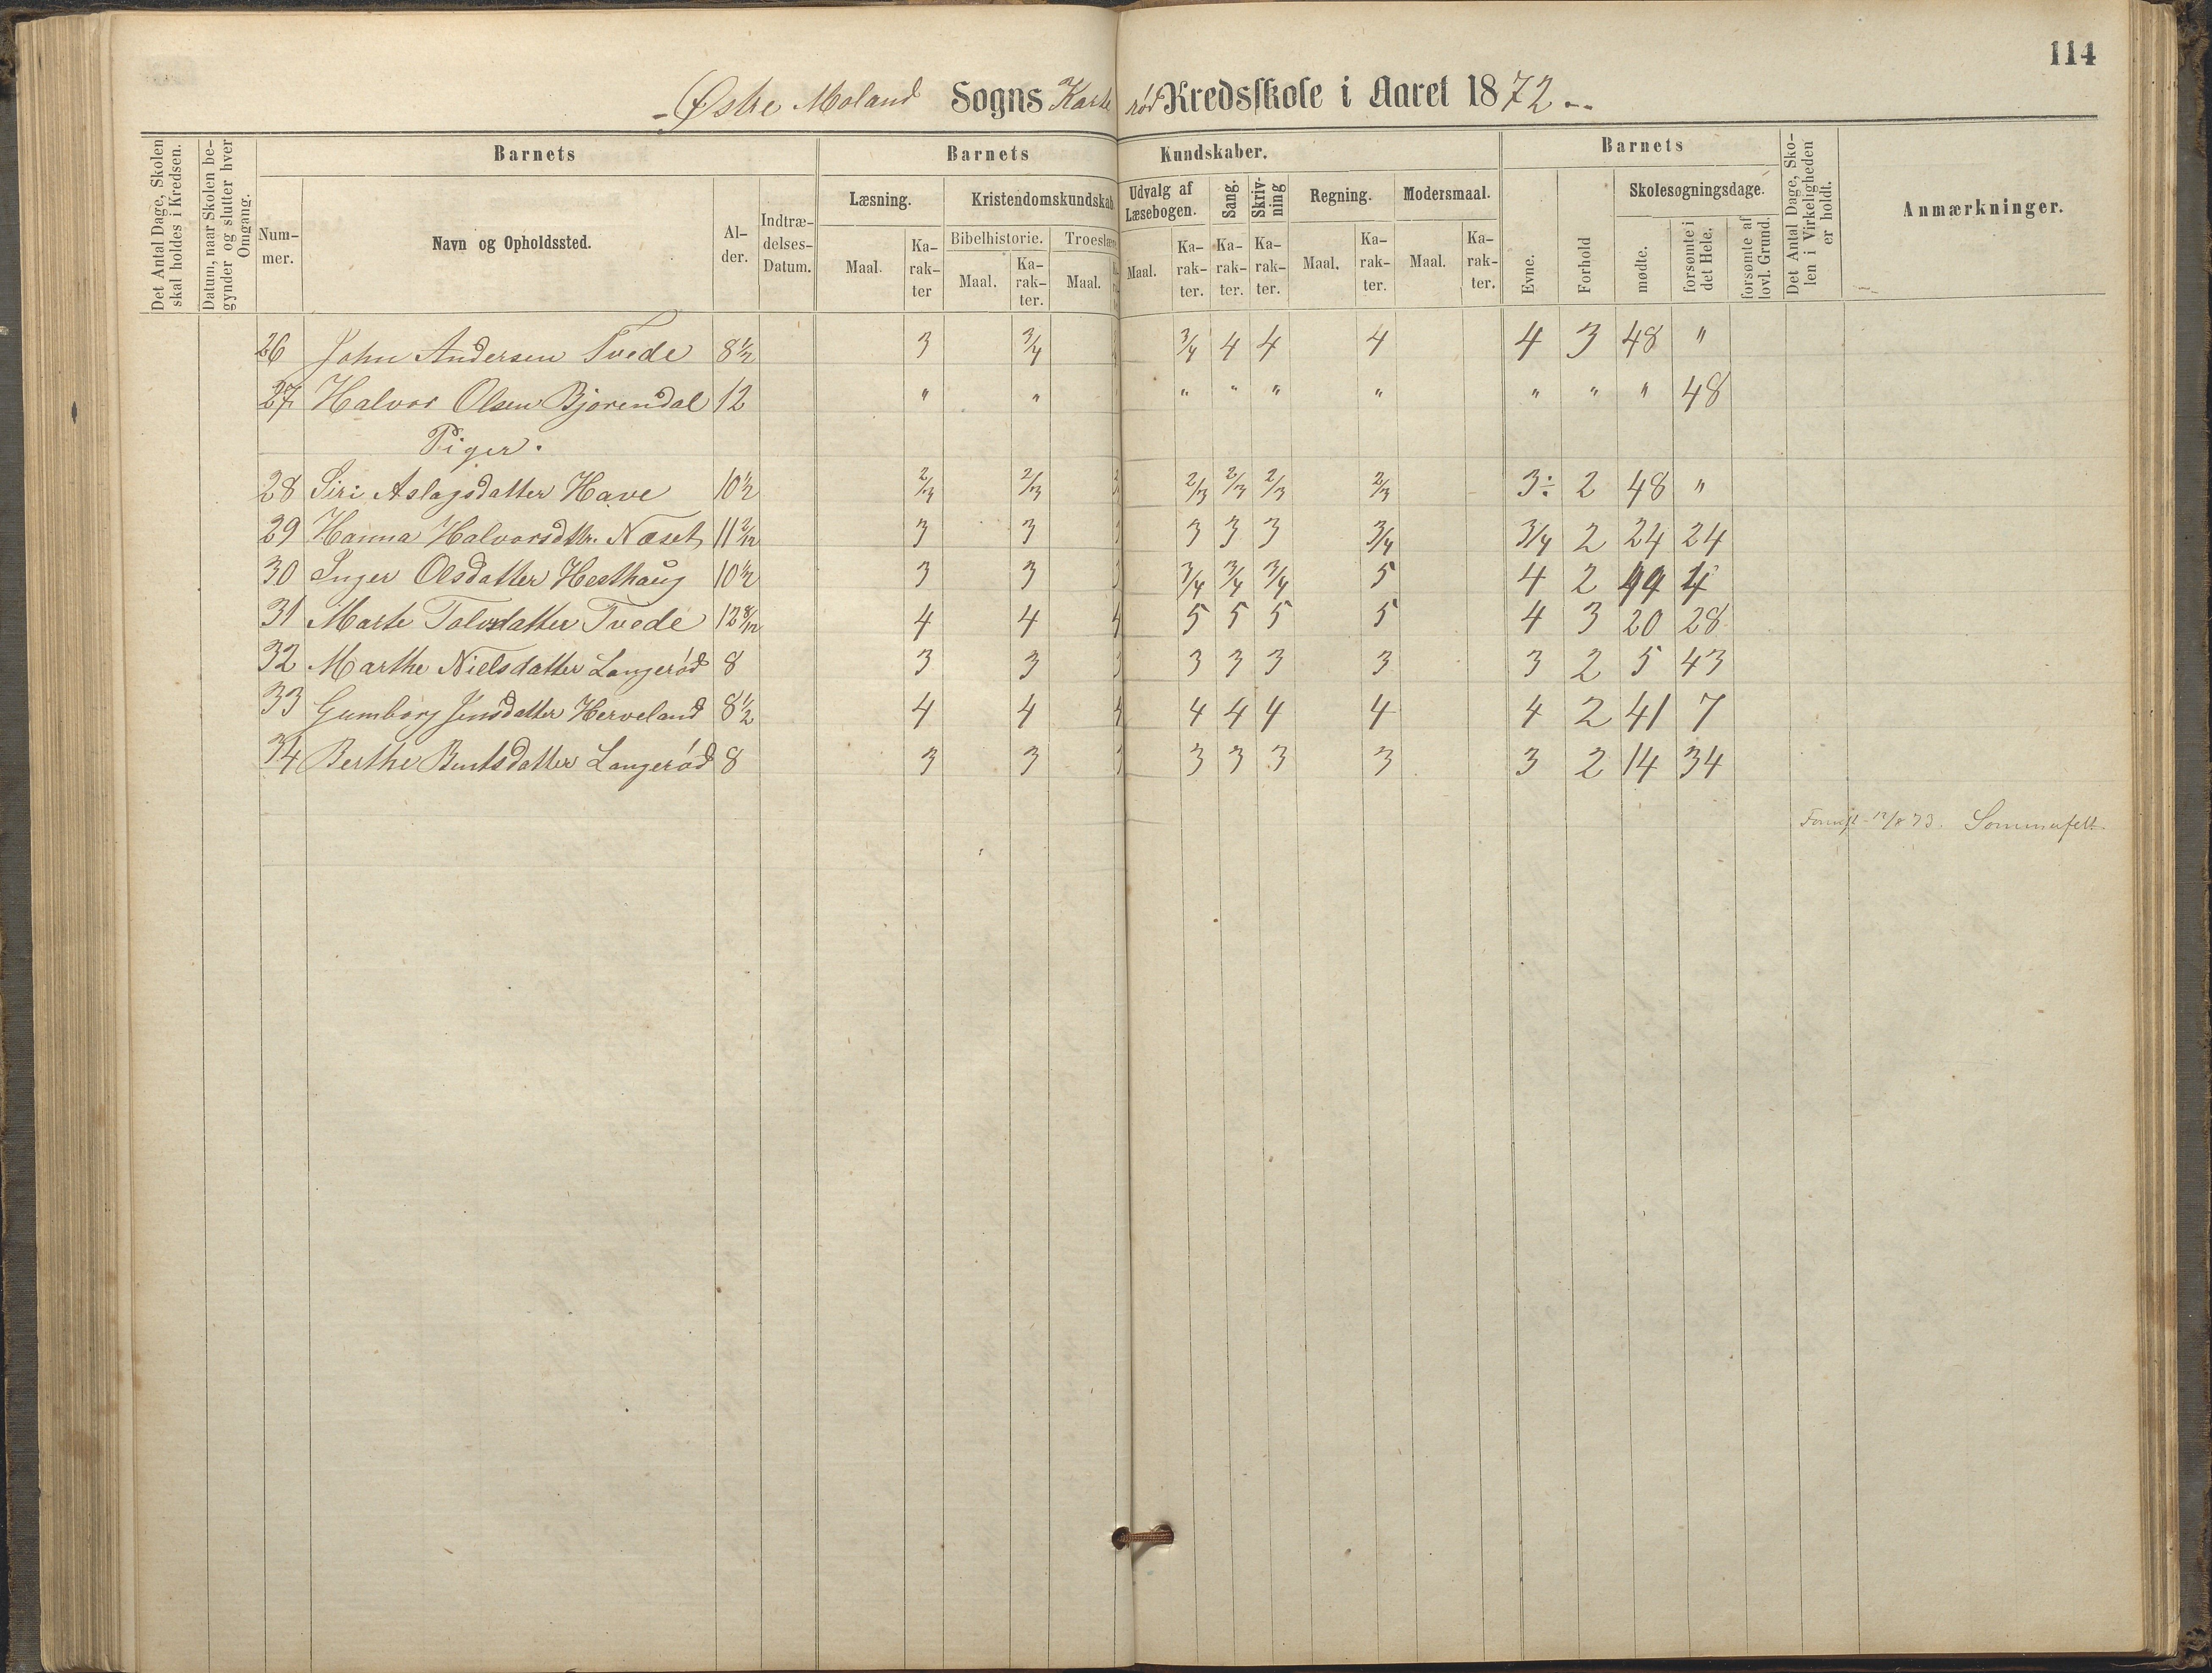 114
- Østre Moland Sogns Karterød Kredsskole i Aaret 1872 --
Det Antal Dage, Skolen skal holdes i Kredsen.
Datum, naar Skolen begynder og slutter hver Omgang.
Barnets
Barnets Kundskaber.
Barnets
Det Antal Dage, Skolen i Virkeligheden er holdt.
Anmærkninger.
Nummer.
Navn og Opholdssted.
Alder.
Indtrædelses-Datum.
Læsning.
Kristendomskundskab
Udvalg af Læsebogen.
Sang.
Skrivning
Regning.
Modersmaal.
Evne.
Forhold
Skolesøgningsdage.
Bibelhistorie.
Troeslære
mødte.
forsømte i det Hele.
forsømte af lovl. Grund.
Maal. Karakter Maal. Karakter. Maal. Maal. Karakter. Karakter. Karakter. Maal. Karakter. Maal. Karakter.
26 John Andersen Tvede 8 1/2 3 3/4 3/4 4 4 4 4 3 48 "
27 Halvor Olsen Bjorendal 12 " " " " " " " " " 48
Piger.
28 Siri Aslagsdatter Have 10 1/2 2/3 2/3 2/3 2/3 2/3 2/3 3÷ 2 48 "
29 Hanna Halvorsdttr. Næset 11 2/12 3 3 3 3 3 3 3/4 3/4 2 24 24
30 Inger Olsdatter Hesthaug 10 1/2 3 3 3 3/4 3/4 3/4 5 4 2 44 4
31 Marte Tolvsdatter Tvede 12 8/12 4 4 4 5 5 5 5 4 3 20 28
32 Marthe Nielsdatter Langerød 8 3 3 3 3 3 3 3 3 2 5 43
33 Gumborg Jensdatter Herveland 8 1/2 4 4 4 4 4 4 4 4 2 41 7
34 Berthe Bentsdatter Langerød 8 3 3 3 3 3 3 3 3 2 14 34
12/8 73. Sommerfelt